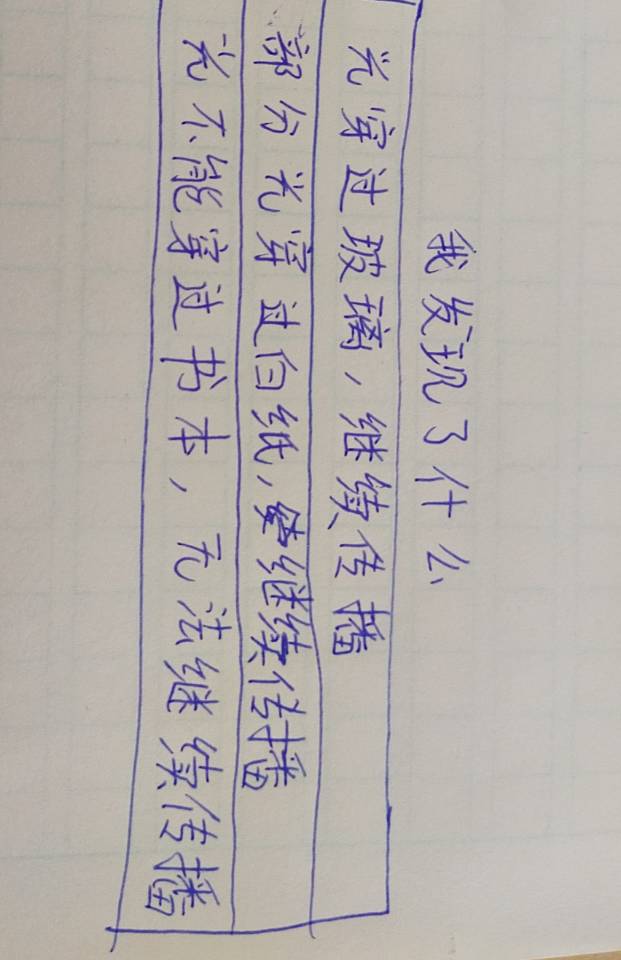 我发现了什么
光穿过玻璃，继续传播
部分光穿过白纸，继续传播
光不能穿过书本，无法继续传播